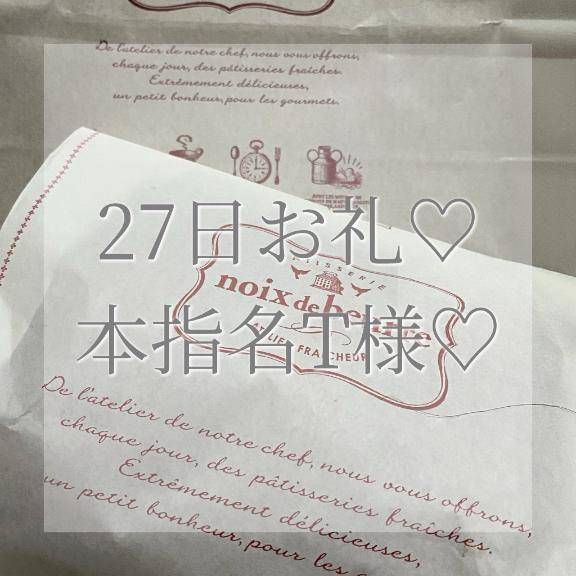 De l'atelier de notre chef, nous vous offrons,
chaque jour, des pâtisseries fraîches.
Extrêmement délicieuses,
un petit bonheur, pour les gourmets.
27日お礼♡
PÂTISSERIE
noix de beurre
ATELIER FRAÎCHEUR
本指名T様♡
De l'atelier de notre chef, nous vous offrons,
chaque jour, des pâtisseries fraîches.
Extrêmement délicieuses,
un petit bonheur, pour les